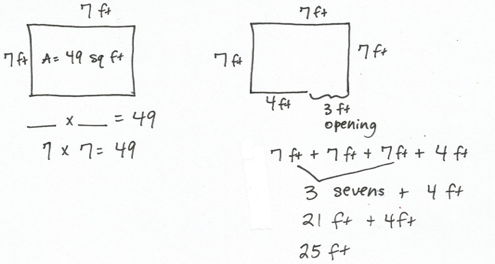 7 ft
7 ft
A = 49 sq ft
___ x ___ = 49
7 x 7 = 49
7 ft
7 ft
7 ft
4 ft
3 ft
opening
7 ft + 7 ft + 7 ft + 4 ft
3 sevens + 4 ft
21 ft + 4 ft
25 ft